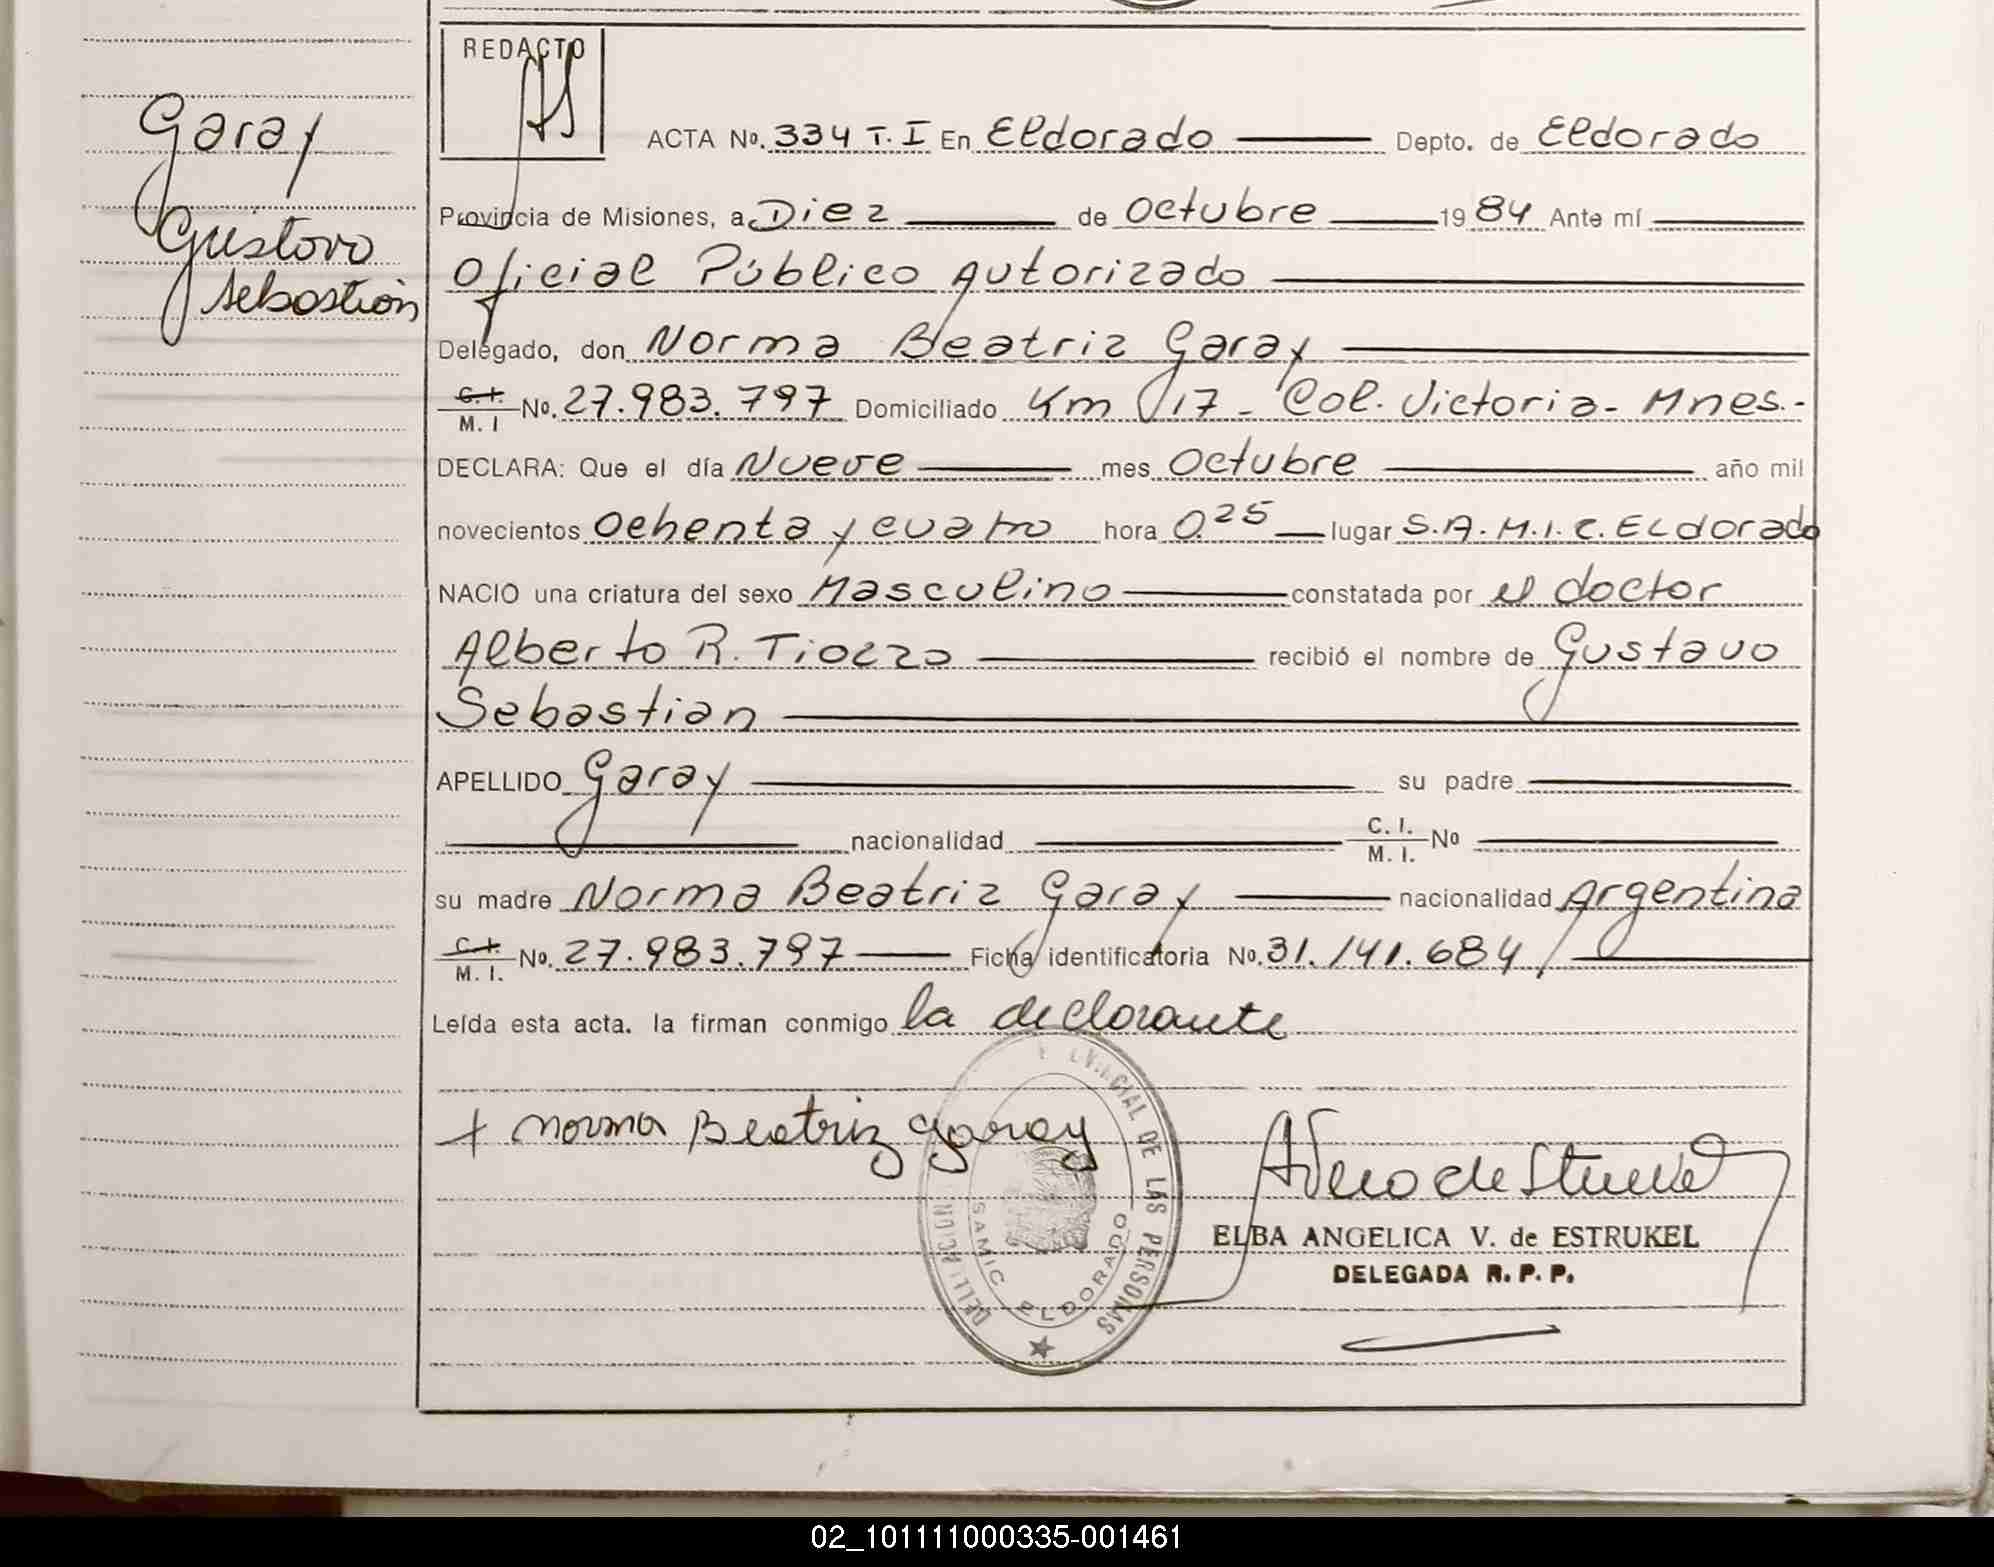 Garay
Gustavo
Sebastián
REDACTO
ACTA No. 334 T. I En Eldorado Depto. de Eldorado
Provincia de Misiones, a Diez de Octubre 1984 Ante mí
Oficial Público Autorizado
Delegado, don Norma Beatriz Garay
C.I. / M. I No. 27.983.797 Domiciliado Km 17 - Col. Victoria - Mnes.-
DECLARA: Que el día Nueve mes Octubre año mil
novecientos Ochenta y cuatro hora 0.25 lugar S.A.M.I.C. ELdorado
NACIO una criatura del sexo Masculino constatada por el doctor
Alberto R. Tiozzo recibió el nombre de Gustavo
Sebastian
APELLIDO Garay su padre
nacionalidad C. I. / M. I. No
su madre Norma Beatriz Garay nacionalidad Argentina
C.I. / M. I. No. 27.983.797 Ficha identificatoria No. 31.141.684
Leída esta acta. la firman conmigo la declarante
+ Norma Beatriz Garay
VINCIAL DE LAS PERSONAS
SAMIC ELDORADO
ELBA ANGELICA V. de ESTRUKEL
DELEGADA R. P. P.
02_101111000335-001461